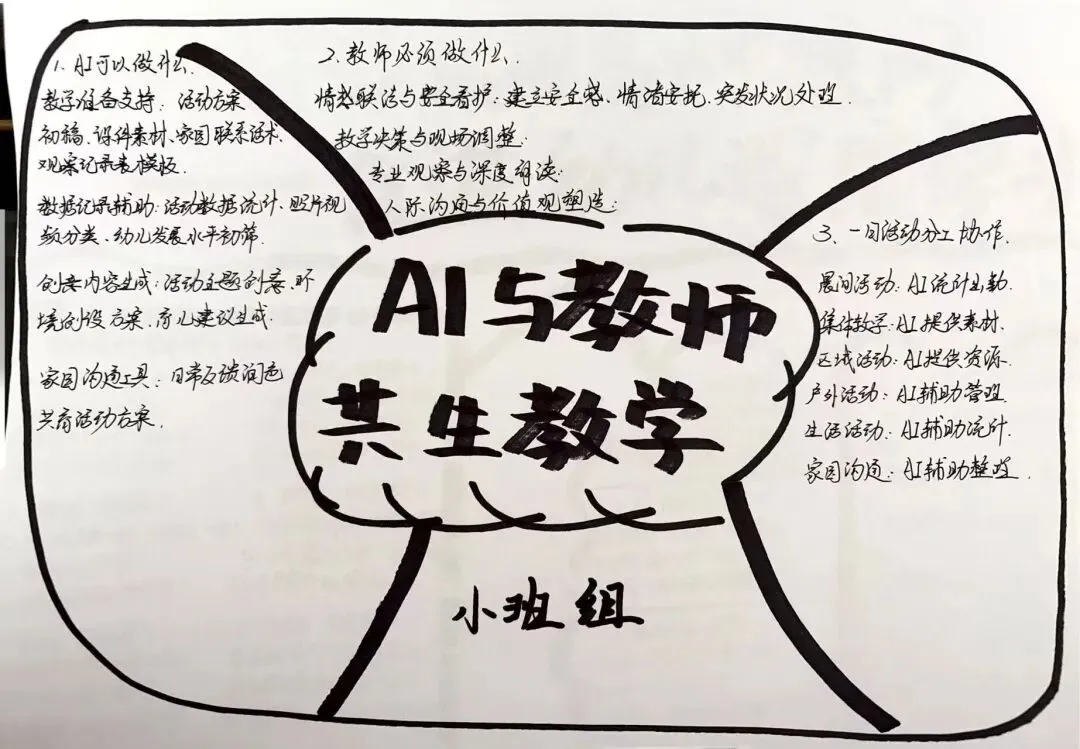 1、AI可以做什么
教学准备支持：活动方案
初稿、课件素材、家园联系话术、
观察记录表模板.
数据记录辅助：活动数据统计、照片视
频分类、幼儿发展水平初筛.
创意内容生成：活动主题创意、环
境创设方案、育儿建议生成.
家园沟通工具：日常反馈润色
共育活动方案.
2、教师必须做什么.
情感联结与安全看护：建立安全感、情绪安抚、突发状况处理.
教学决策与现场调整：
专业观察与深度解读：
人际沟通与价值观塑造：
3、一日活动分工协作.
晨间活动：AI统计出勤.
集体教学：AI提供素材.
区域活动：AI提供资源.
户外活动：AI辅助管理.
生活活动：AI辅助统计.
家园沟通：AI辅助整理.
AI与教师
共生教学
小班组